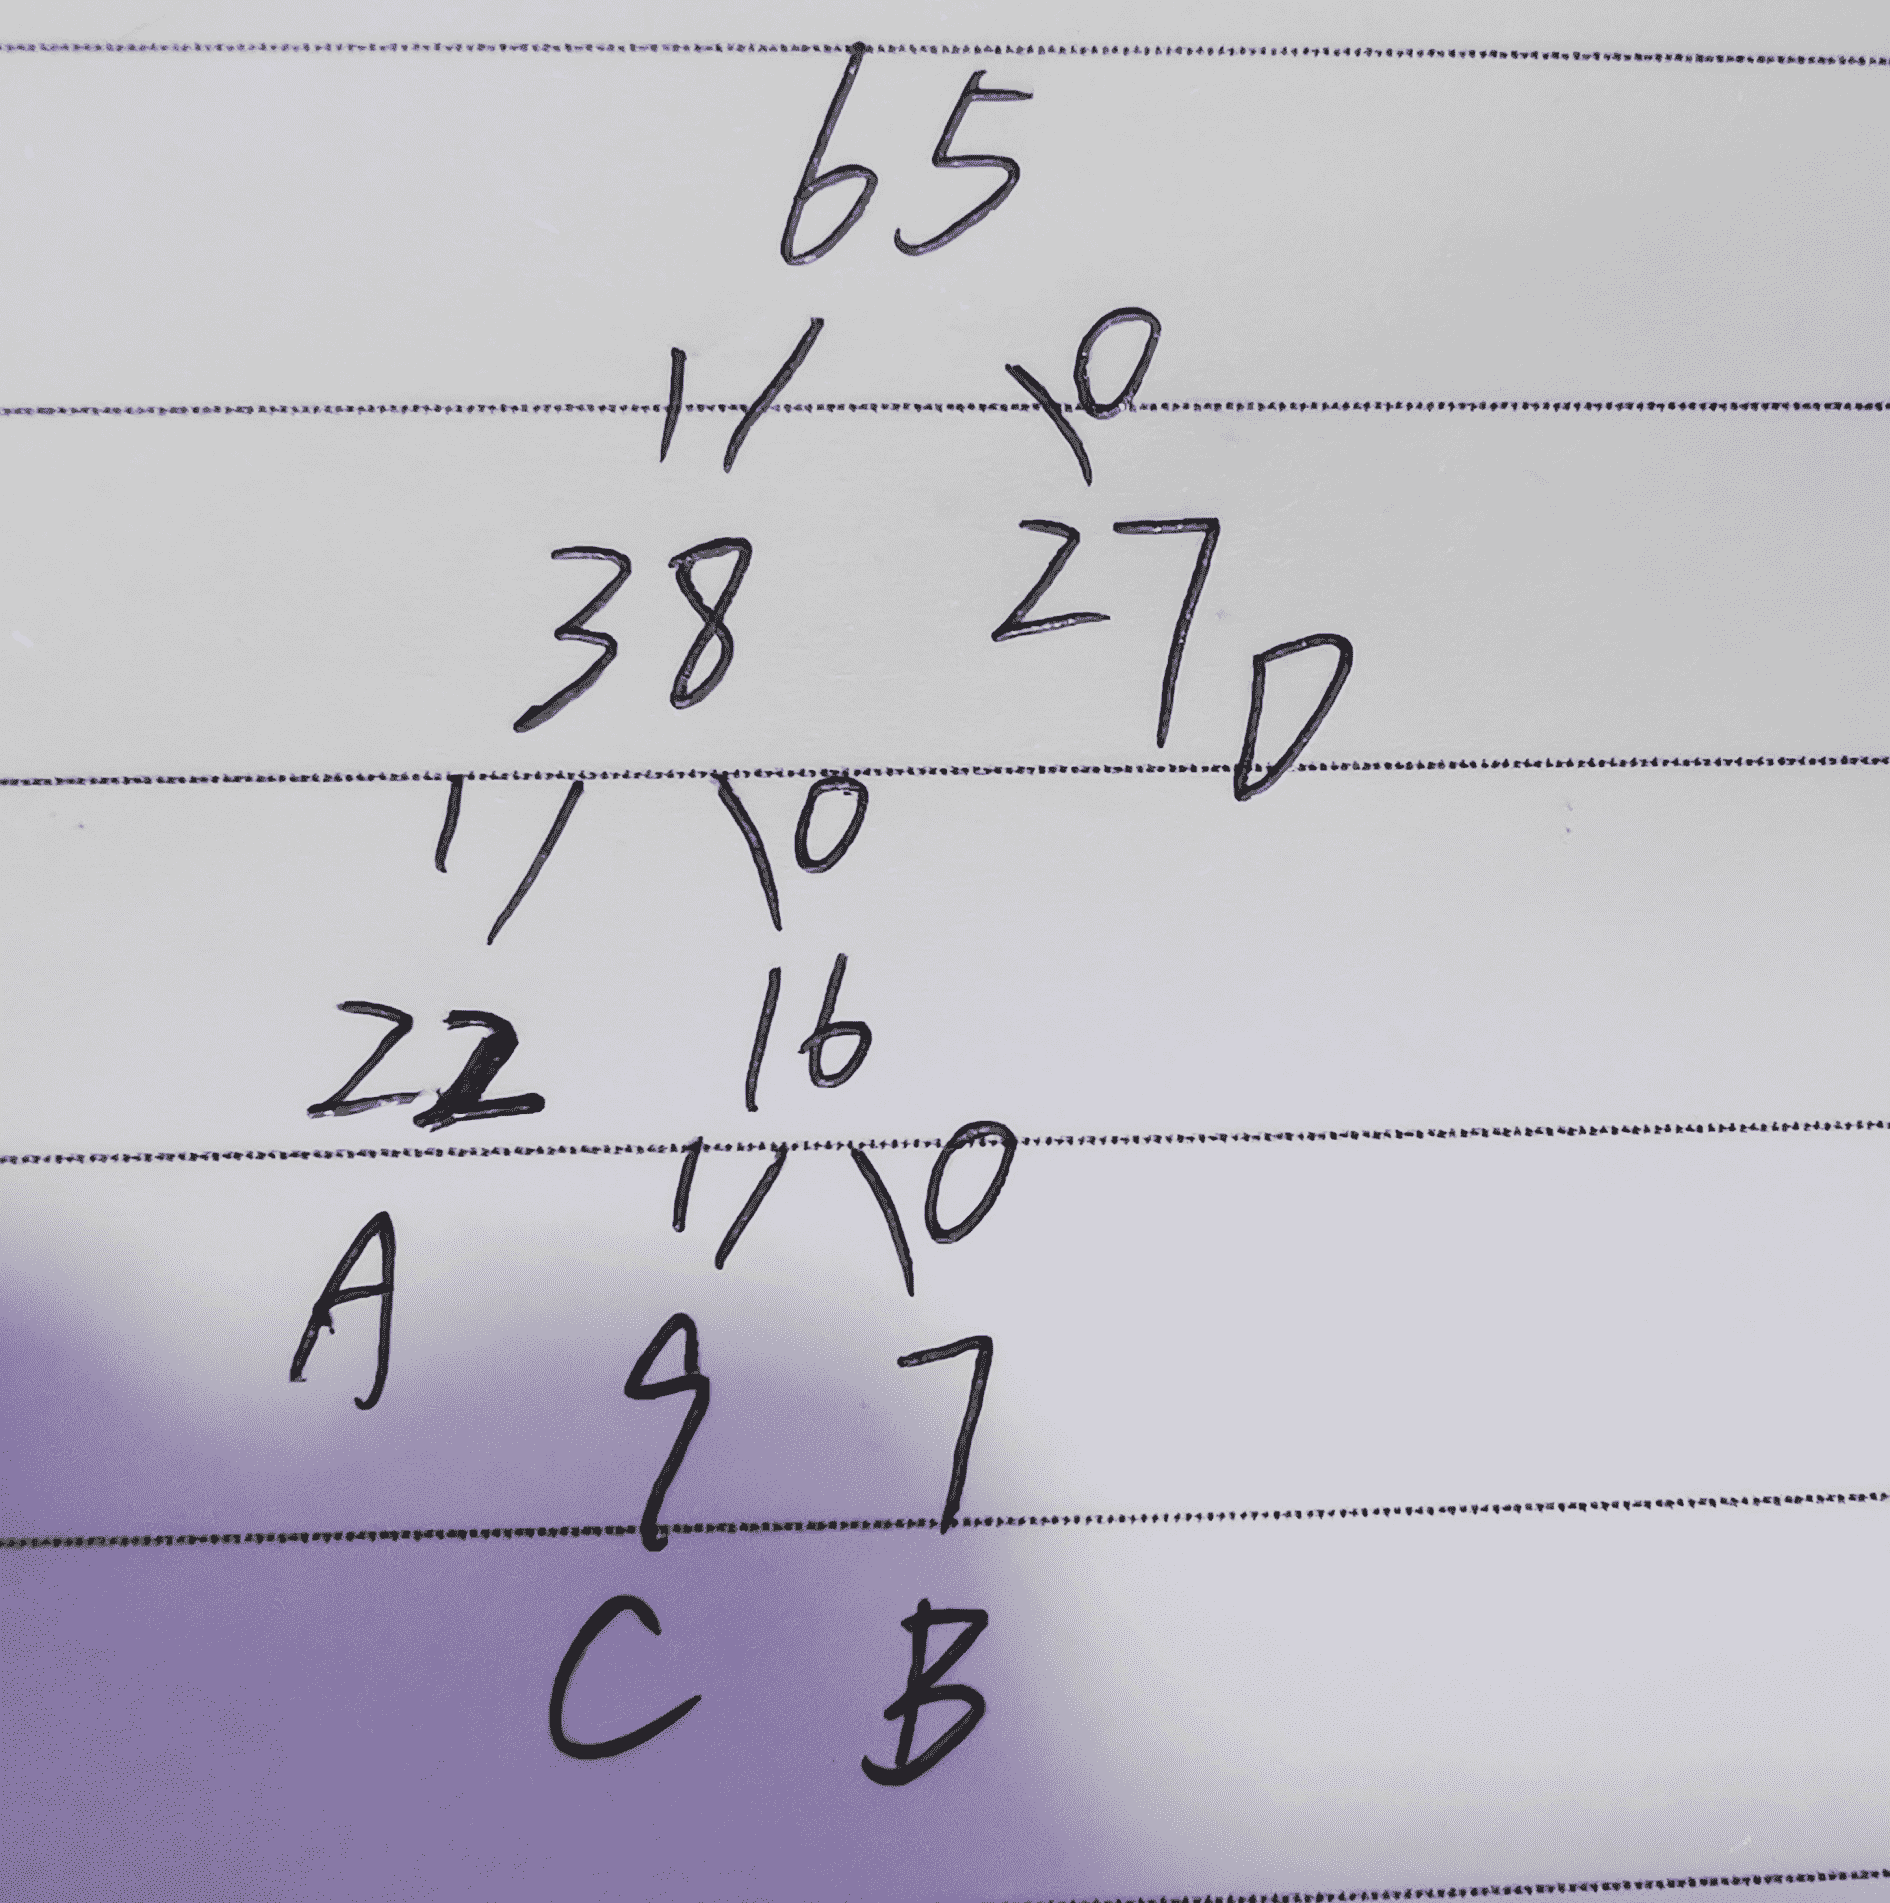 65
1 0
38 27
D
1 0
22 16
1 0
A
9 7
C B